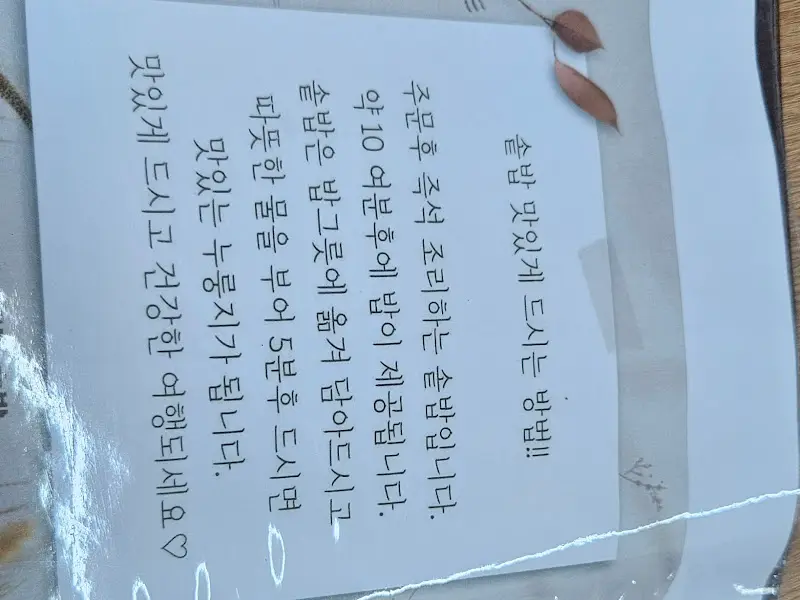 솥밥 맛있게 드시는 방법!!
주문후 즉석 조리하는 솥밥입니다.
약 10 여분후에 밥이 제공됩니다.
솥밥은 밥그릇에 옮겨 담아드시고
따뜻한 물을 부어 5분후 드시면
맛있는 누룽지가 됩니다.
맛있게 드시고 건강한 여행되세요♡